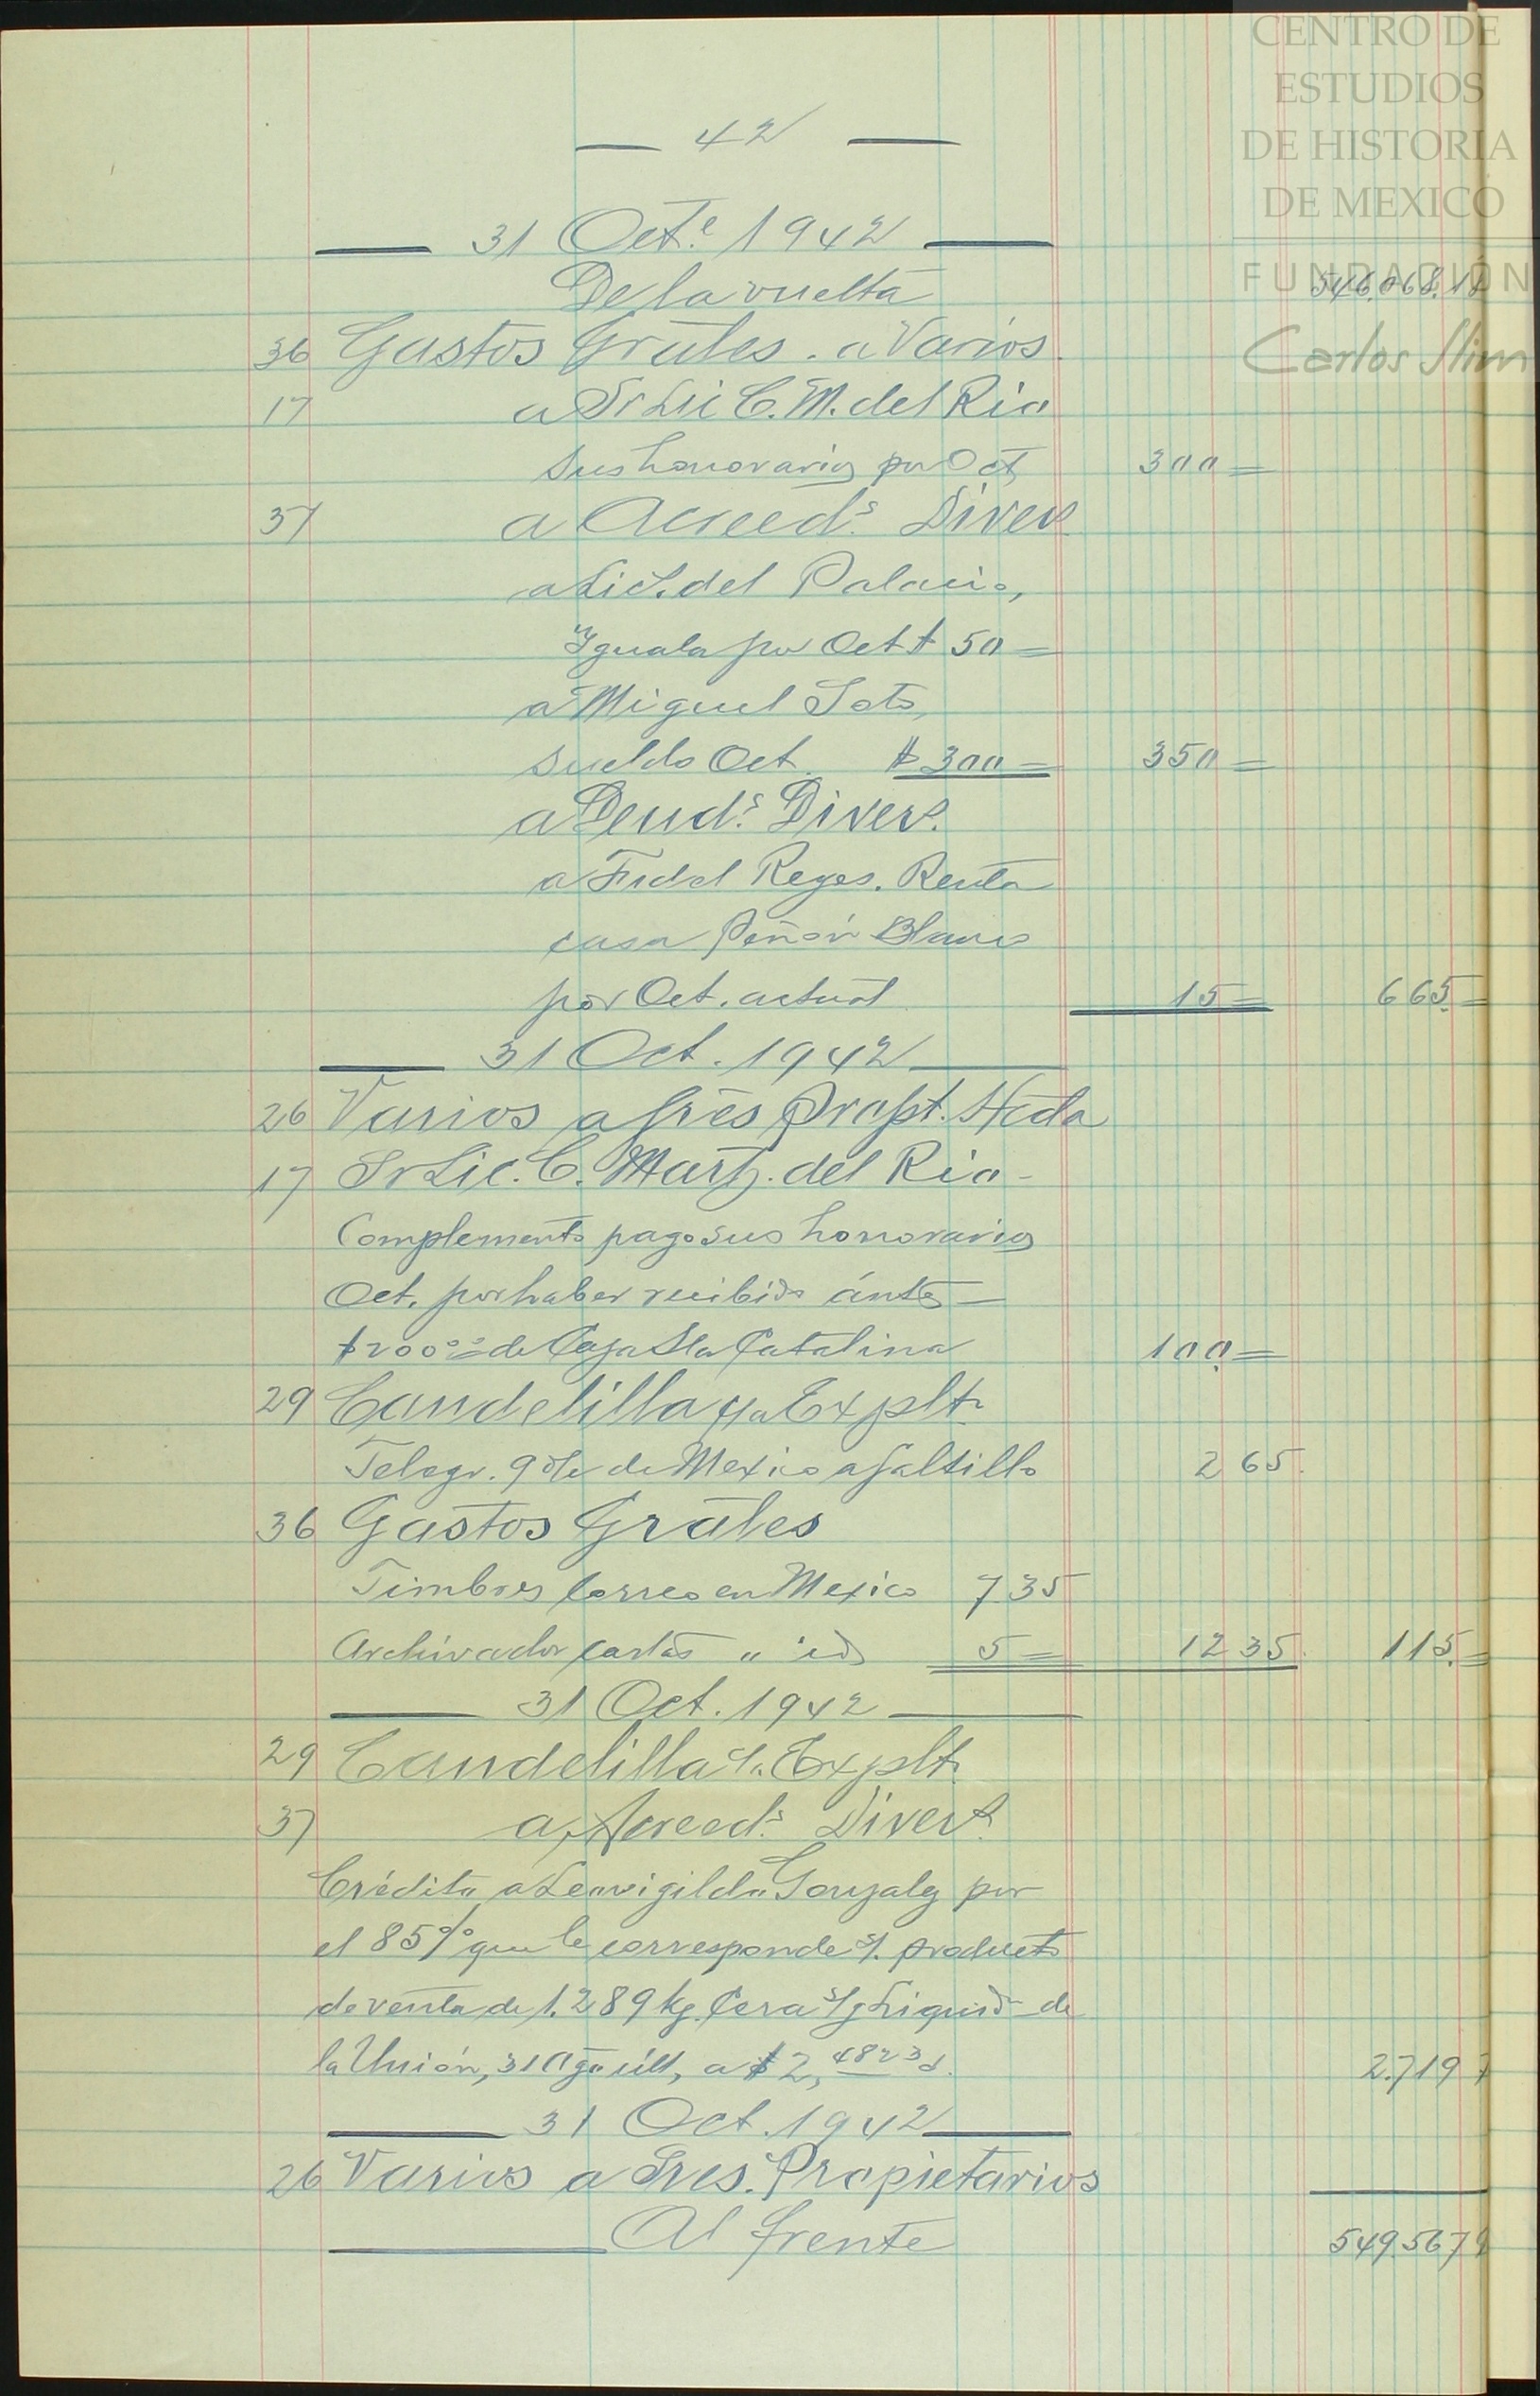 CENTRO DE
ESTUDIOS
DE HISTORIA
DE MEXICO
FUNDACIÓN
Carlos Slim
— 42 —
— 31 Oct.e 1942 —
De la vuelta 546,068.18
36 Gastos Gráles. a Varios.
17 a Sr Lic C. M. del Rio
sus honorarios por Oct 300=
37 a Acreed.s Divers
a Lic. del Palacio,
Iguala por Oct $ 50=
a Miguel Soto,
sueldo Oct. $ 300= 350=
a Deud.s Divers.
a Fidel Reyes. Renta
casa Peñón Blanco
por Oct. actual 15= 665.=
— 31 Oct. 1942 —
26 Varios a Sres Propt. Hcda
17 Sr Lic. C. Martz. del Rio-
Complemento pago sus honorarios
Oct. por haber recibido ántes—
$200oo= de Caja Sta Catalina 100=
29 Candelilla Explt.
Telegr. 9 de Mexico a Saltillo 2 65.
36 Gastos Gráles
Timbres correo en Mexico 7.35
Archivador cartas " id 5= 12 35. 115.=
— 31 Oct. 1942 —
29 Candelilla Explt.
37 a Acreed.s Divers.
Crédito a Leovigildo Gonzalez por
el 85% que le corresponde s/. producto
de venta de 1.289 kg. Cera s/ Liquid de
la Unión, 31 Ago últ, a $ 2, 4823
2.719 7
— 31 Oct. 1942 —
26 Varios a Sres. Propietarios
— Al frente 549.567 9